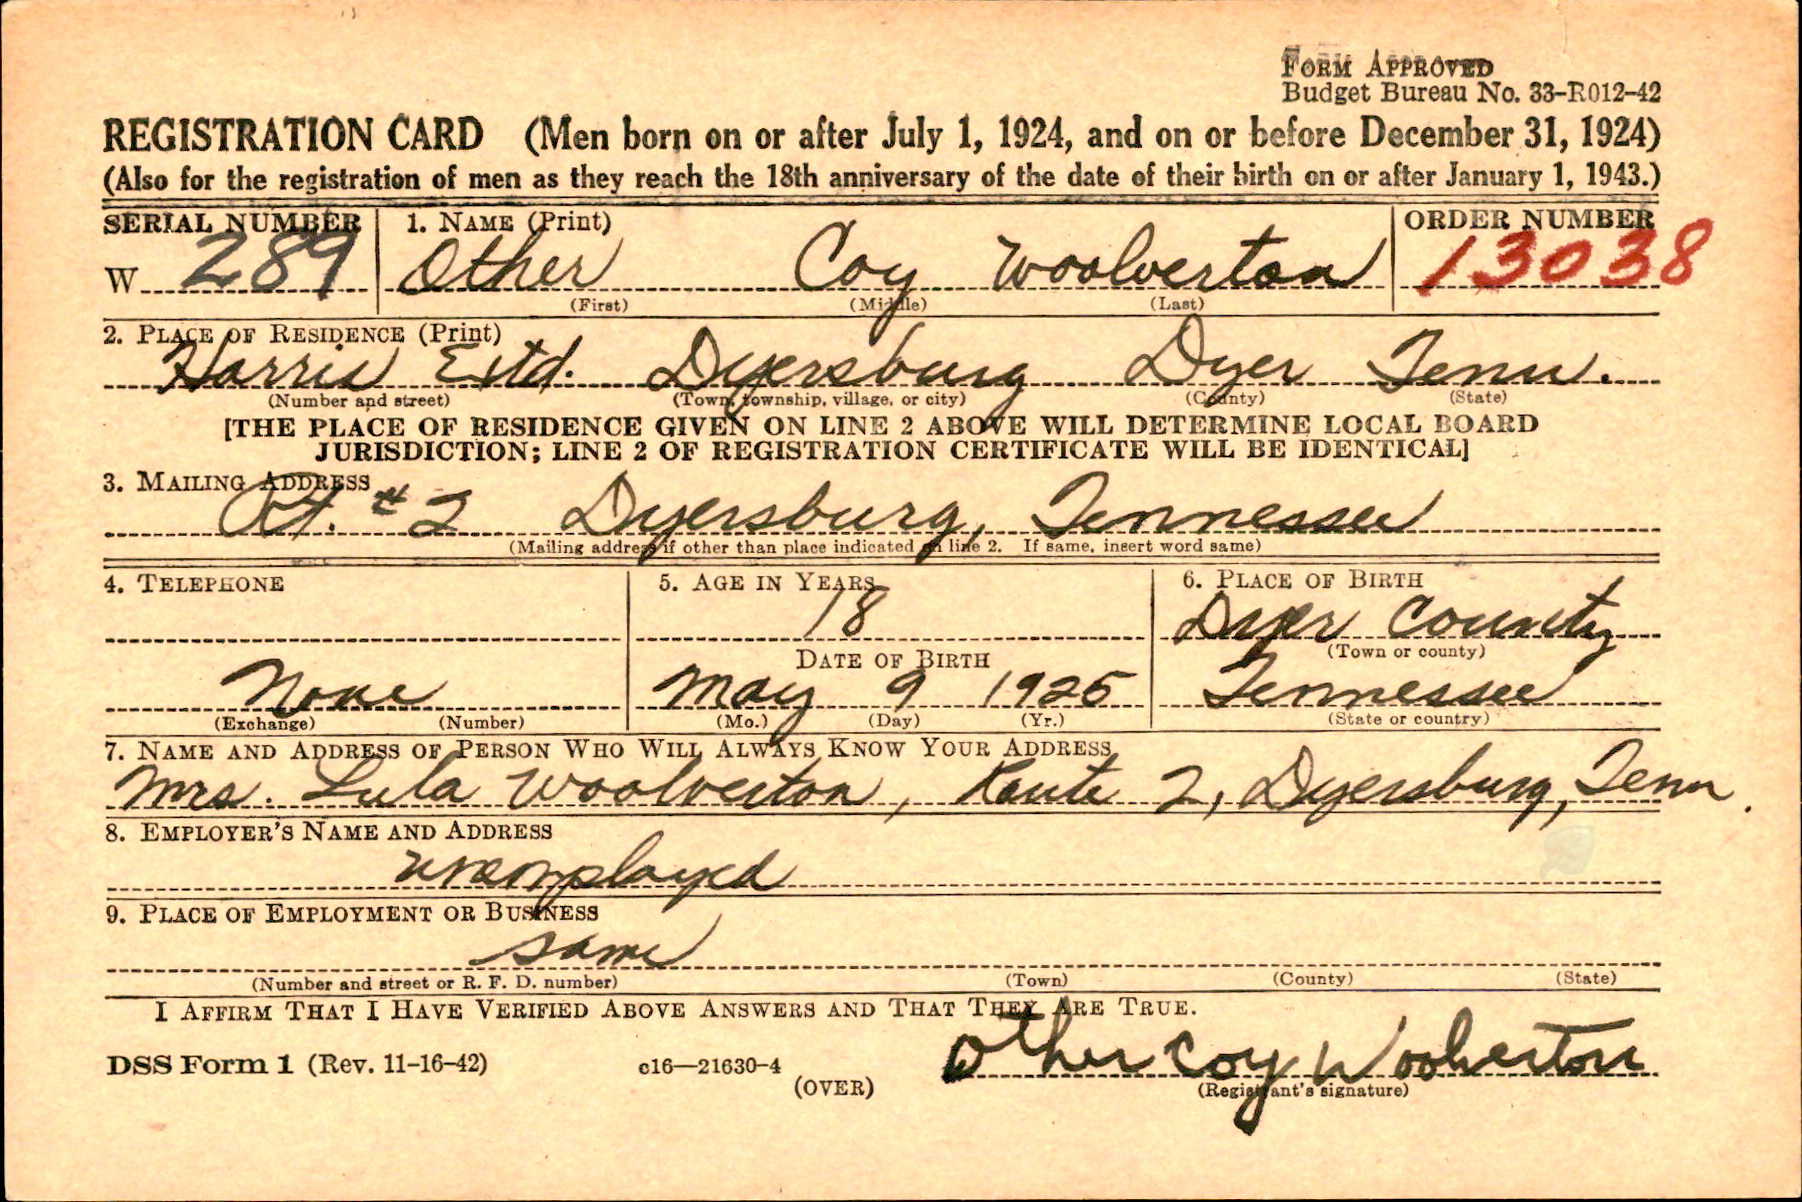 FORM APPROVED
Budget Bureau No. 33-R012-42
REGISTRATION CARD (Men born on or after July 1, 1924, and on or before December 31, 1924)
(Also for the registration of men as they reach the 18th anniversary of the date of their birth on or after January 1, 1943.)
SERIAL NUMBER 1. NAME (Print) ORDER NUMBER
W 289 Other Coy Woolverton 13038
(First) (Middle) (Last)
2. PLACE OF RESIDENCE (Print)
Harris Extd. Dyersburg Dyer Tenn.
(Number and street) (Town, township, village, or city) (County) (State)
[THE PLACE OF RESIDENCE GIVEN ON LINE 2 ABOVE WILL DETERMINE LOCAL BOARD
JURISDICTION; LINE 2 OF REGISTRATION CERTIFICATE WILL BE IDENTICAL]
3. MAILING ADDRESS
Rt. #2 Dyersburg, Tennessee
(Mailing address if other than place indicated on line 2. If same, insert word same)
4. TELEPHONE 5. AGE IN YEARS 6. PLACE OF BIRTH
18 Dyer County
DATE OF BIRTH (Town or county)
None May 9 1925 Tennessee
(Exchange) (Number) (Mo.) (Day) (Yr.) (State or country)
7. NAME AND ADDRESS OF PERSON WHO WILL ALWAYS KNOW YOUR ADDRESS
Mrs. Lula Woolverton, Route 2, Dyersburg, Tenn.
8. EMPLOYER'S NAME AND ADDRESS
unemployed
9. PLACE OF EMPLOYMENT OR BUSINESS
same
(Number and street or R. F. D. number) (Town) (County) (State)
I AFFIRM THAT I HAVE VERIFIED ABOVE ANSWERS AND THAT THEY ARE TRUE.
DSS Form 1 (Rev. 11-16-42) c16—21630-4 Other Coy Woolverton
(OVER) (Registrant's signature)